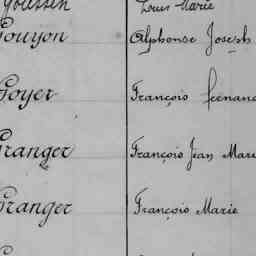 Louis Marie
Gouyon Alphonse Joseph
Goyer François Fernand
Granger François Jean Marie
Granger François Marie